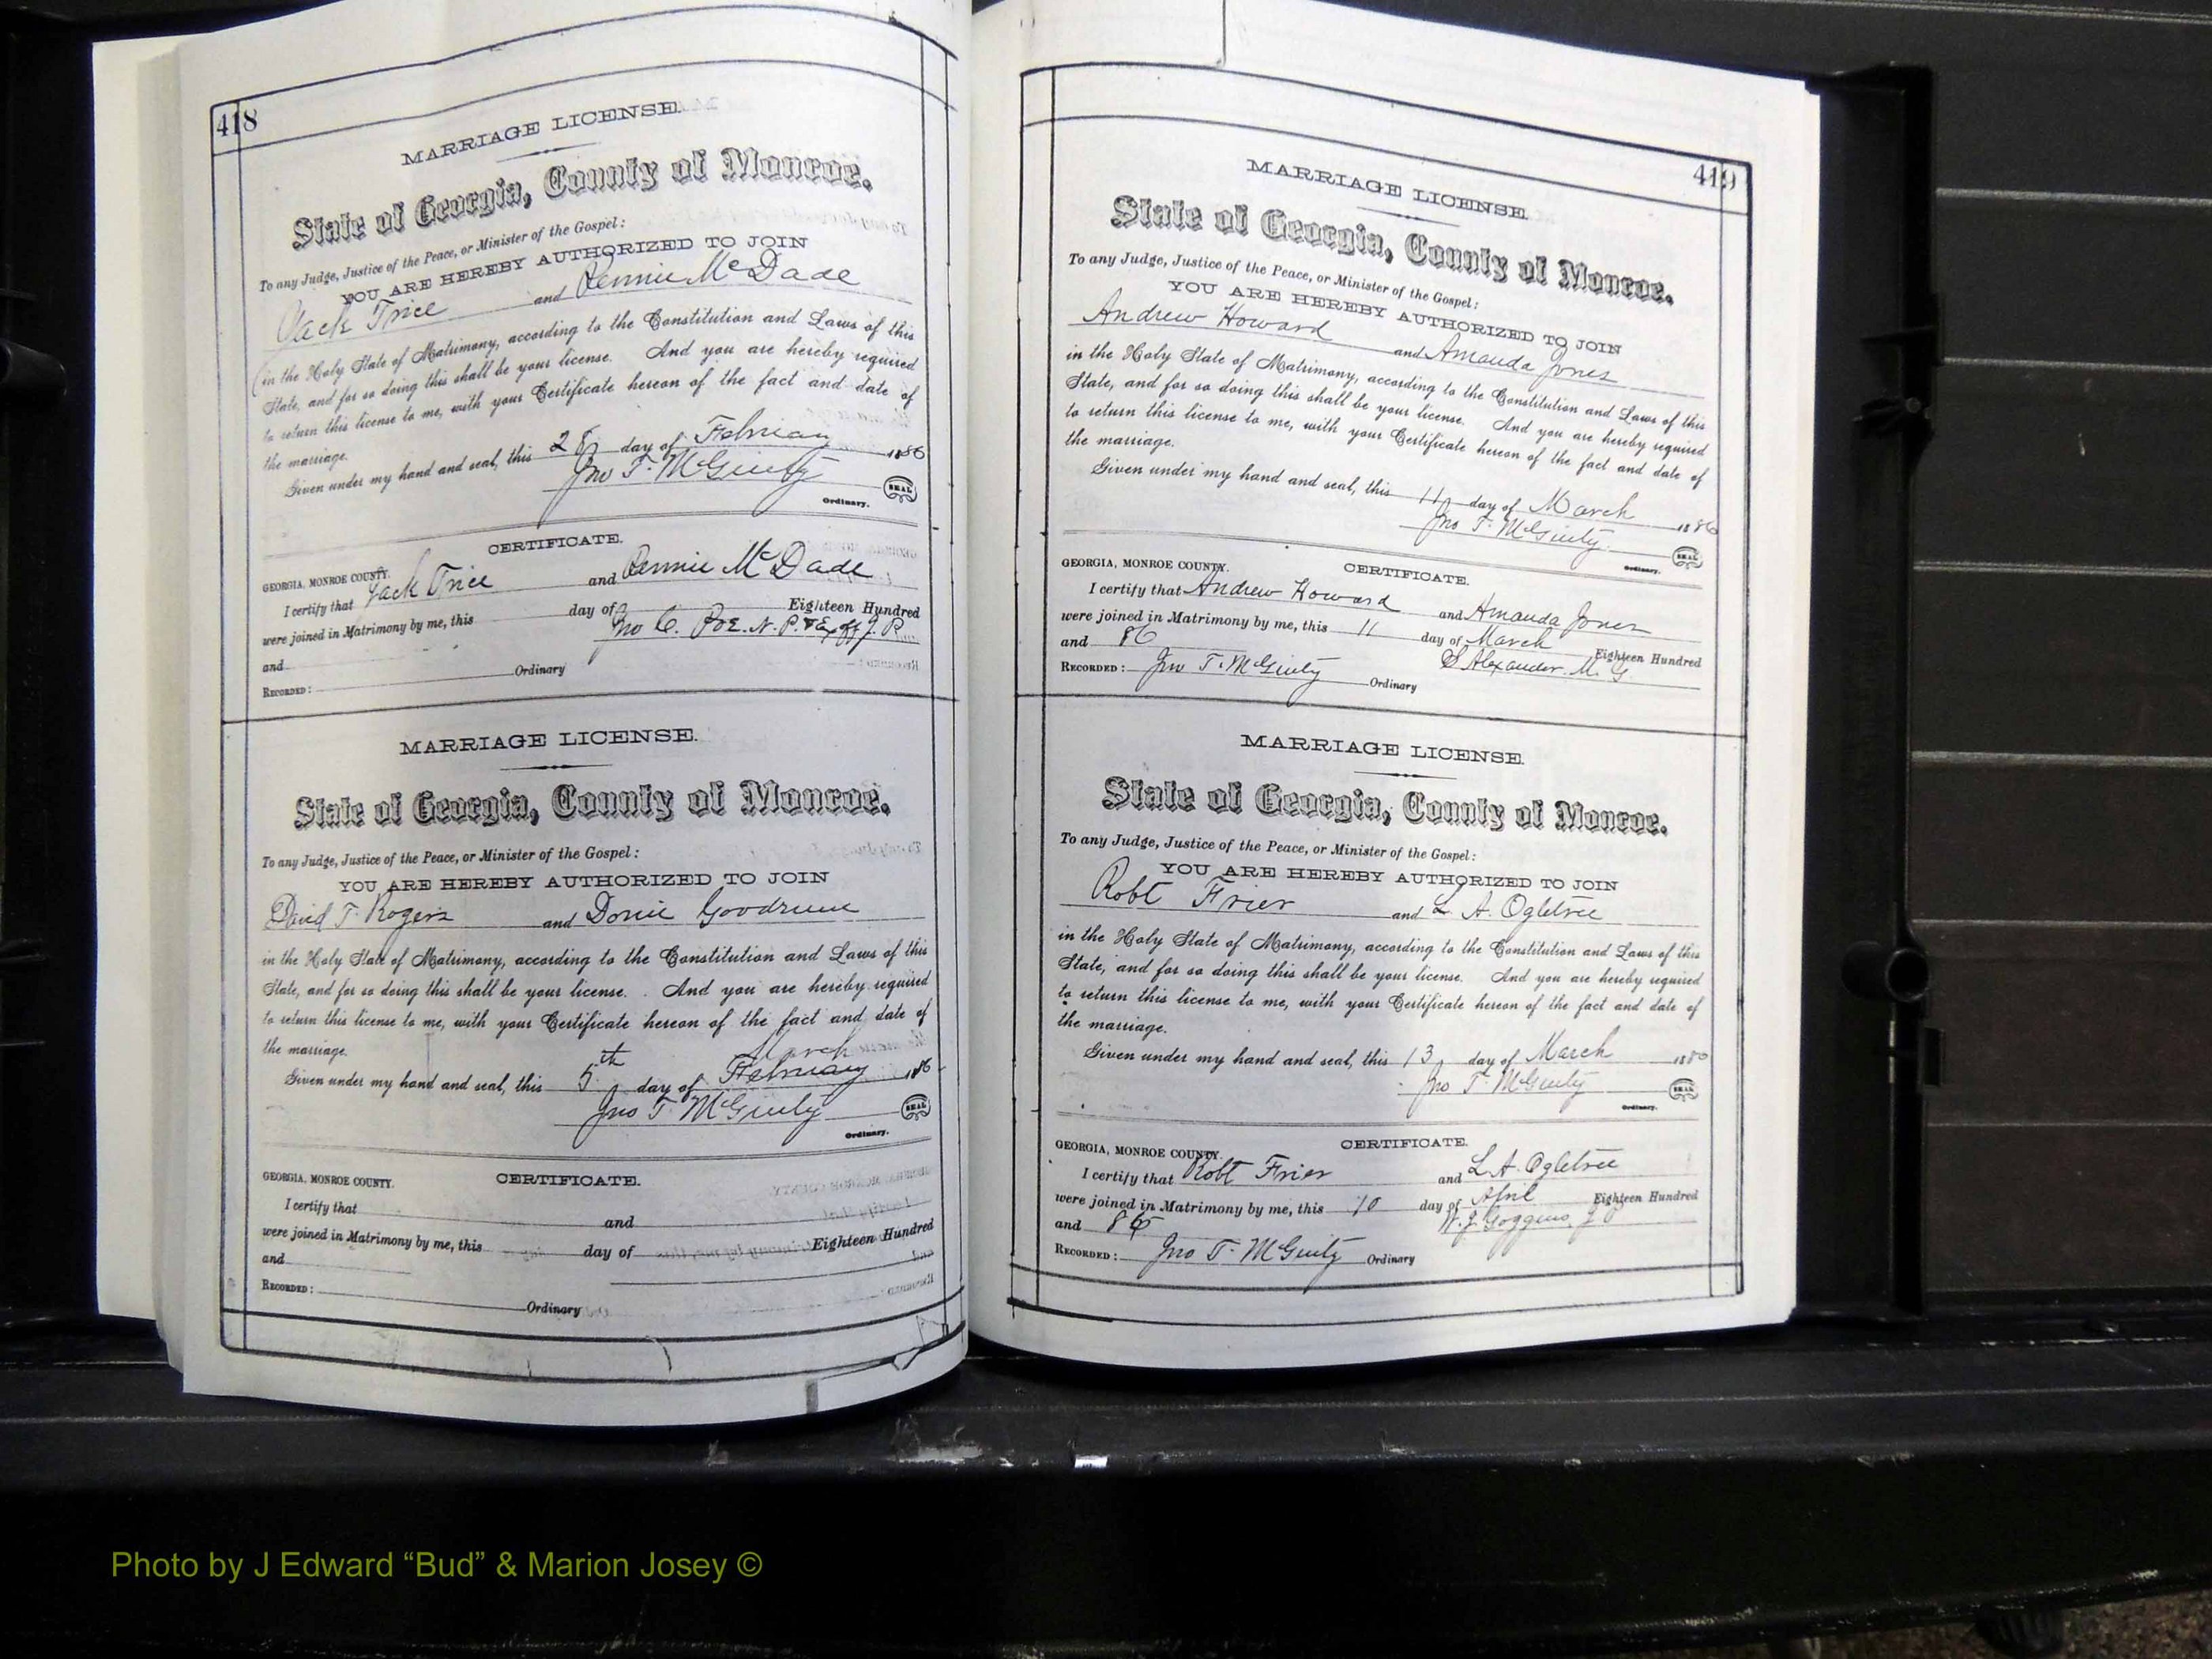 418
MARRIAGE LICENSE.
State of Georgia, County of Monroe.
To any Judge, Justice of the Peace, or Minister of the Gospel:
YOU ARE HEREBY AUTHORIZED TO JOIN
Jack Trice and Pennie McDade
in the Holy State of Matrimony, according to the Constitution and Laws of this
State, and for so doing this shall be your license. And you are hereby required
to return this license to me, with your Certificate hereon of the fact and date of
the marriage.
Given under my hand and seal, this 28 day of February 1886
Jno T. McGinty SEAL
Ordinary.
CERTIFICATE.
GEORGIA, MONROE COUNTY.
I certify that Jack Trice and Pennie McDade
were joined in Matrimony by me, this day of Eighteen Hundred
and Jno C. Poe. N. P. & Ex off J. P.
RECORDED: Ordinary
MARRIAGE LICENSE.
State of Georgia, County of Monroe.
To any Judge, Justice of the Peace, or Minister of the Gospel:
YOU ARE HEREBY AUTHORIZED TO JOIN
David T. Rogers and Donie Goodrum
in the Holy State of Matrimony, according to the Constitution and Laws of this
State, and for so doing this shall be your license. And you are hereby required
to return this license to me, with your Certificate hereon of the fact and date of
the marriage. March
Given under my hand and seal, this 5th day of February 1886
Jno T. McGinty SEAL
Ordinary.
CERTIFICATE.
GEORGIA, MONROE COUNTY.
I certify that and
were joined in Matrimony by me, this day of Eighteen Hundred
and
RECORDED: Ordinary
419
MARRIAGE LICENSE.
State of Georgia, County of Monroe.
To any Judge, Justice of the Peace, or Minister of the Gospel:
YOU ARE HEREBY AUTHORIZED TO JOIN
Andrew Howard and Amanda Jones
in the Holy State of Matrimony, according to the Constitution and Laws of this
State, and for so doing this shall be your license. And you are hereby required
to return this license to me, with your Certificate hereon of the fact and date of
the marriage.
Given under my hand and seal, this 11 day of March 1886
Jno T. McGinty SEAL
Ordinary.
CERTIFICATE.
GEORGIA, MONROE COUNTY.
I certify that Andrew Howard and Amanda Jones
were joined in Matrimony by me, this 11 day of March Eighteen Hundred
and 86 S Alexander. M. G.
RECORDED: Jno T. McGinty Ordinary
MARRIAGE LICENSE.
State of Georgia, County of Monroe.
To any Judge, Justice of the Peace, or Minister of the Gospel:
YOU ARE HEREBY AUTHORIZED TO JOIN
Robt Frier and L. A. Ogletree
in the Holy State of Matrimony, according to the Constitution and Laws of this
State, and for so doing this shall be your license. And you are hereby required
to return this license to me, with your Certificate hereon of the fact and date of
the marriage.
Given under my hand and seal, this 13 day of March 1880
Jno T. McGinty SEAL
Ordinary.
CERTIFICATE.
GEORGIA, MONROE COUNTY.
I certify that Robt Frier and L. A. Ogletree
were joined in Matrimony by me, this 10 day of April Eighteen Hundred
and W. J. Goggins,
RECORDED: Jno T. McGinty Ordinary
Photo by J Edward “Bud” & Marion Josey ©